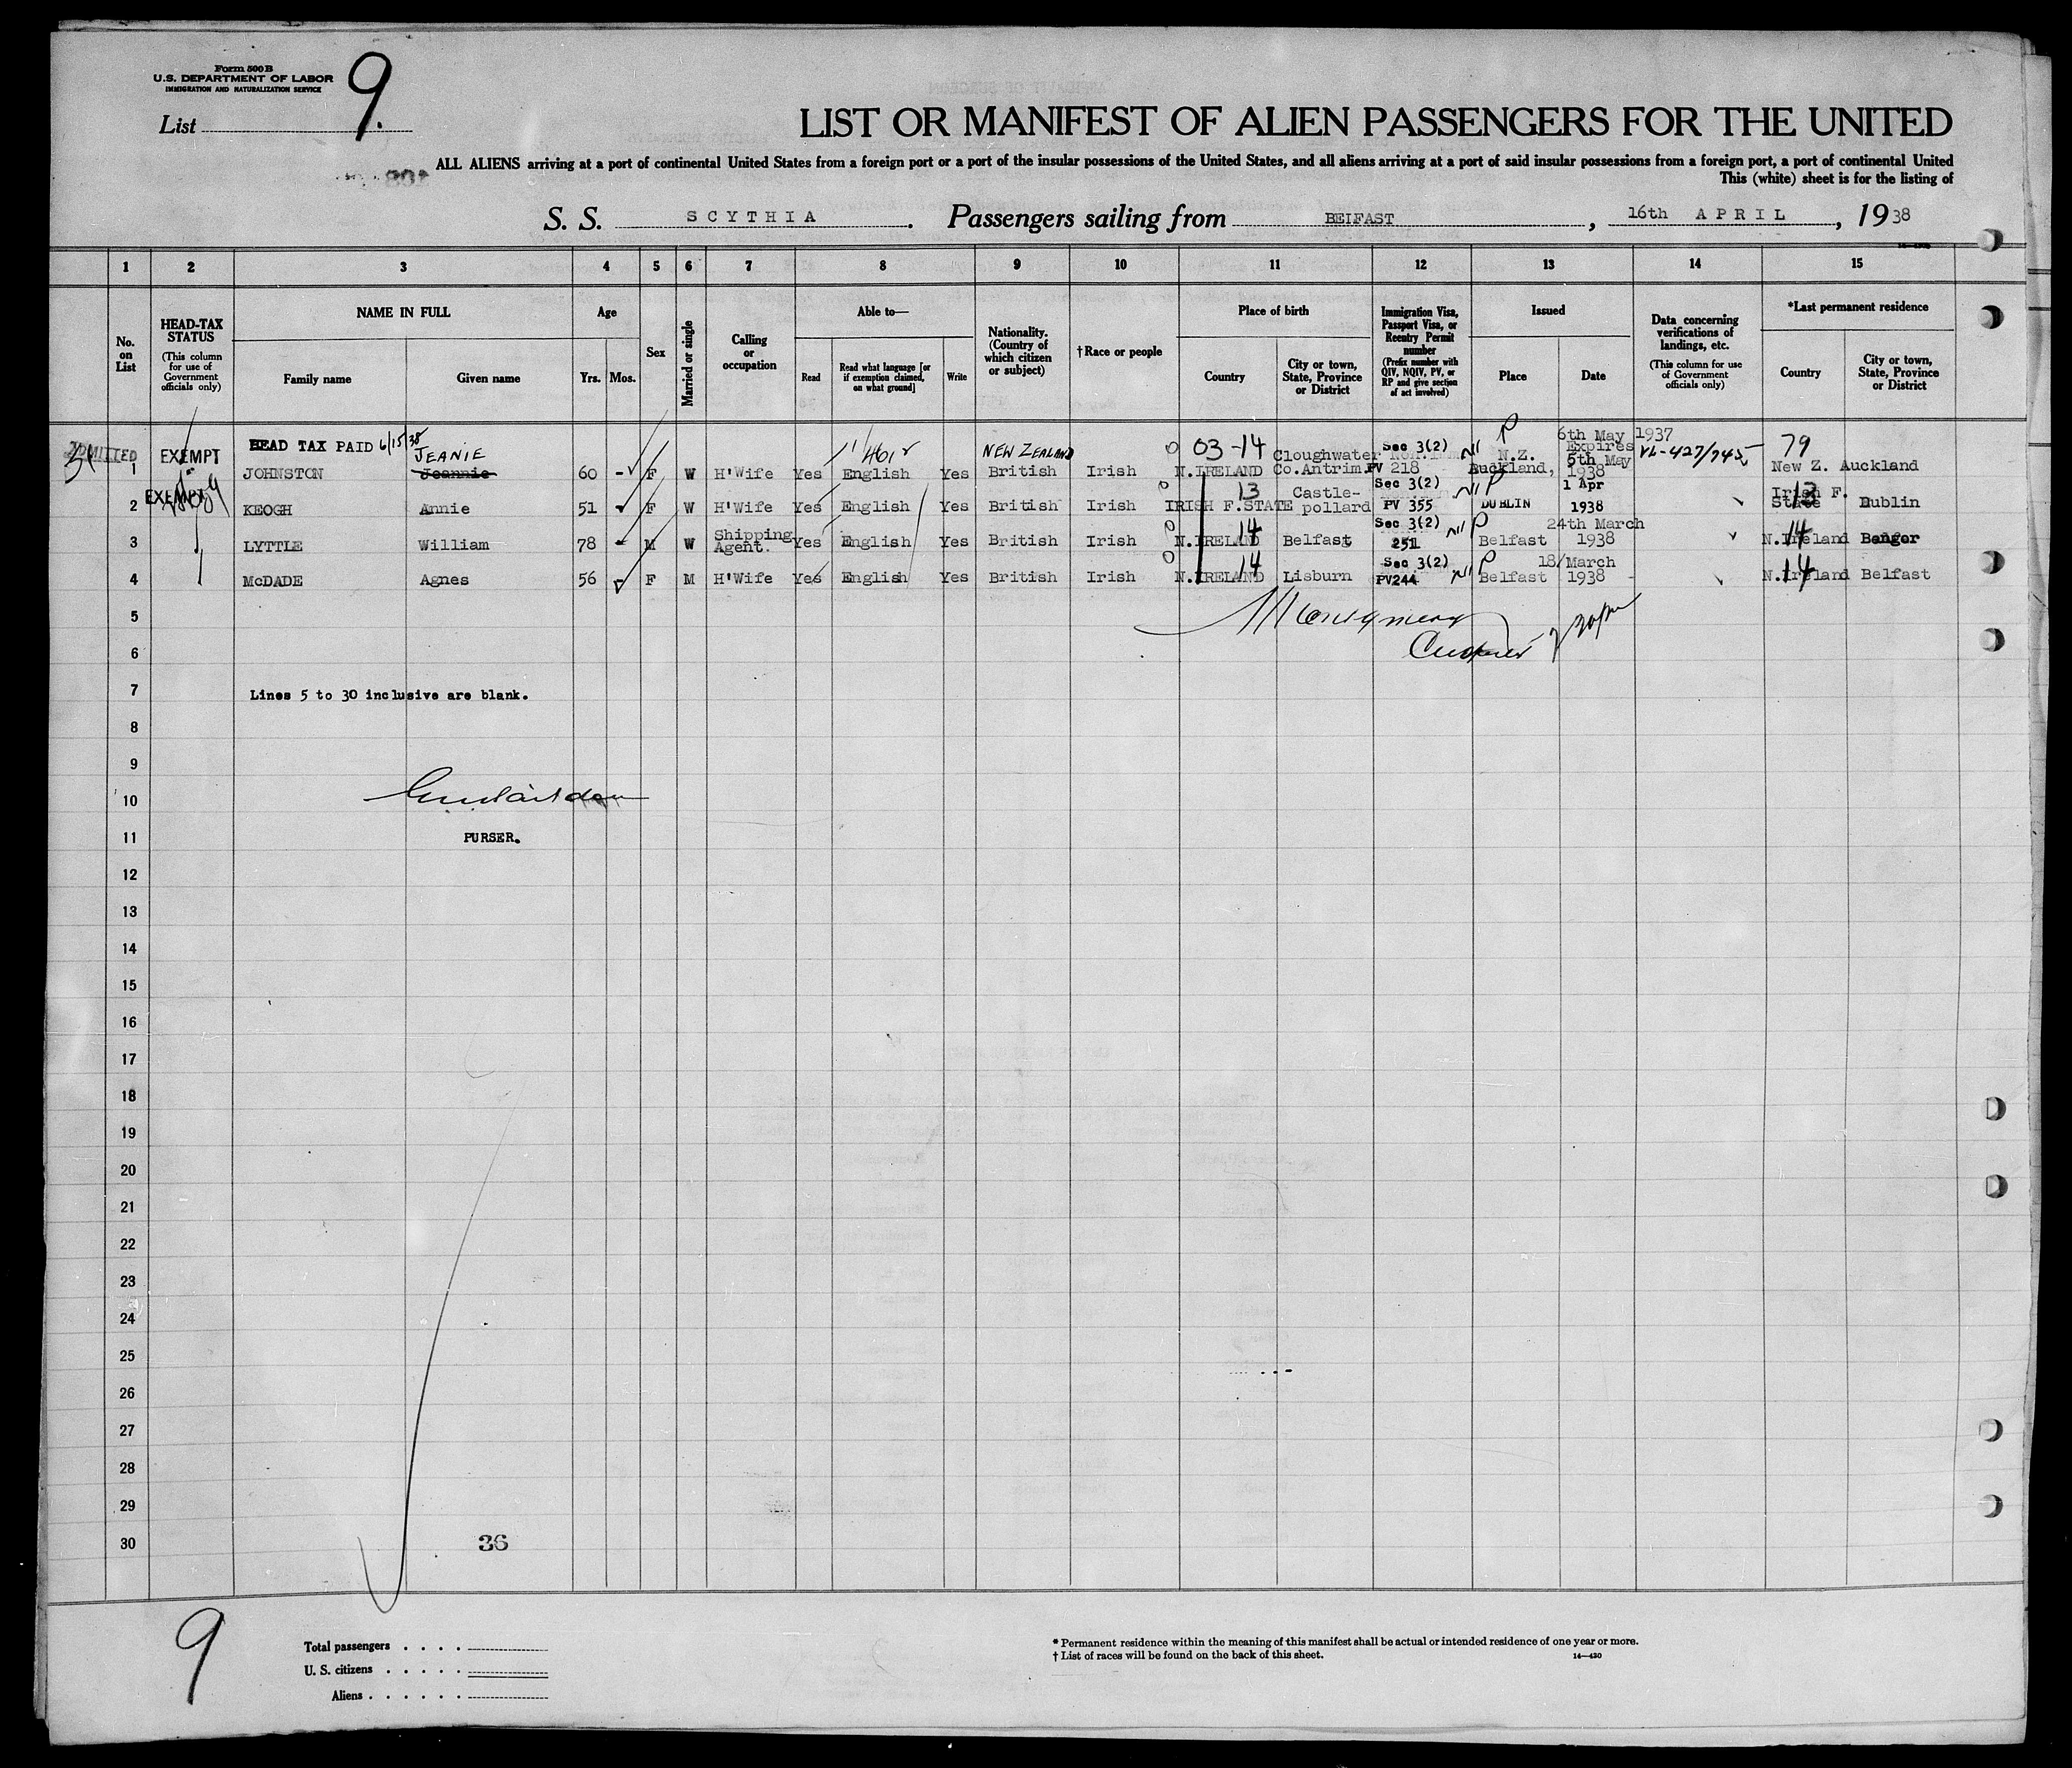 Form 500 B
U.S. DEPARTMENT OF LABOR
IMMIGRATION AND NATURALIZATION SERVICE
List 9.
LIST OR MANIFEST OF ALIEN PASSENGERS FOR THE UNITED
ALL ALIENS arriving at a port of continental United States from a foreign port or a port of the insular possessions of the United States, and all aliens arriving at a port of said insular possessions from a foreign port, a port of continental United
This (white) sheet is for the listing of
S. S. SCYTHIA. Passengers sailing from BELFAST, 16th APRIL, 1938
1 2 3 4 5 6 7 8 9 10 11 12 13 14 15
No. on List
HEAD-TAX STATUS
(This column for use of Government officials only)
NAME IN FULL
Family name Given name
Age
Yrs. Mos.
Sex
Married or single
Calling or occupation
Able to—
Read
Read what language [or if exemption claimed, on what ground]
Write
Nationality. (Country of which citizen or subject)
†Race or people
Place of birth
Country
City or town, State, Province or District
Immigration Visa, Passport Visa, or Reentry Permit number
(Prefix number with QIV, NQIV, PV, or RP and give section of act involved)
Issued
Place Date
Data concerning verifications of landings, etc.
(This column for use of Government officials only)
*Last permanent residence
Country
City or town, State, Province or District
ADMITTED EXEMPT HEAD TAX PAID 6/15/38 JEANIE NEW ZEALAND 03-14 Cloughwater Sec 3(2) P 6th May 1937 Expires 79
1 JOHNSTON Jeannie 60 F W H'Wife Yes English Yes British Irish N.IRELAND Co.Antrim. PV 218 Auckland, N.Z. 5th May 1938 New Z. Auckland
EXEMPT 13 Castle- Sec 3(2) P 1 Apr Irish F. 13
2 KEOGH Annie 51 F W H'Wife Yes English Yes British Irish IRISH F.STATE pollard PV 355 DUBLIN 1938 State Dublin
Shipping 14 Sec 3(2) P 24th March 14
3 LYTTLE William 78 M W Agent. Yes English Yes British Irish N.IRELAND Belfast 251 Belfast 1938 N.Ireland Bangor
14 Sec 3(2) P 18/March 14
4 McDADE Agnes 56 F M H'Wife Yes English Yes British Irish N.IRELAND Lisburn PV244 Belfast 1938 N.Ireland Belfast
5
6
7 Lines 5 to 30 inclusive are blank.
8
9
10
11 PURSER.
12
13
14
15
16
17
18
19
20
21
22
23
24
25
26
27
28
29
30 36
9
Total passengers
U. S. citizens
Aliens
* Permanent residence within the meaning of this manifest shall be actual or intended residence of one year or more.
† List of races will be found on the back of this sheet.
14—430